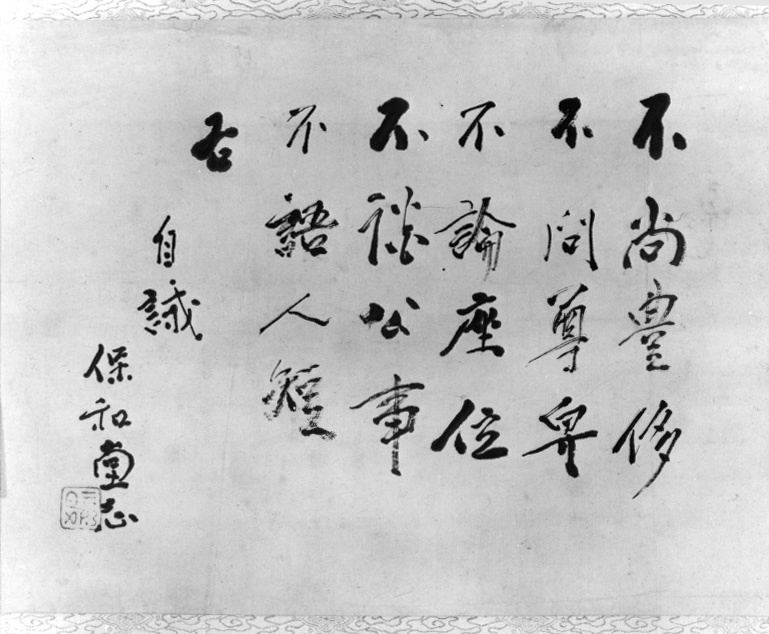 不尚豊侈
不問尊卑
不論座位
不談公事
不語人短
右
自誡
保和堂志